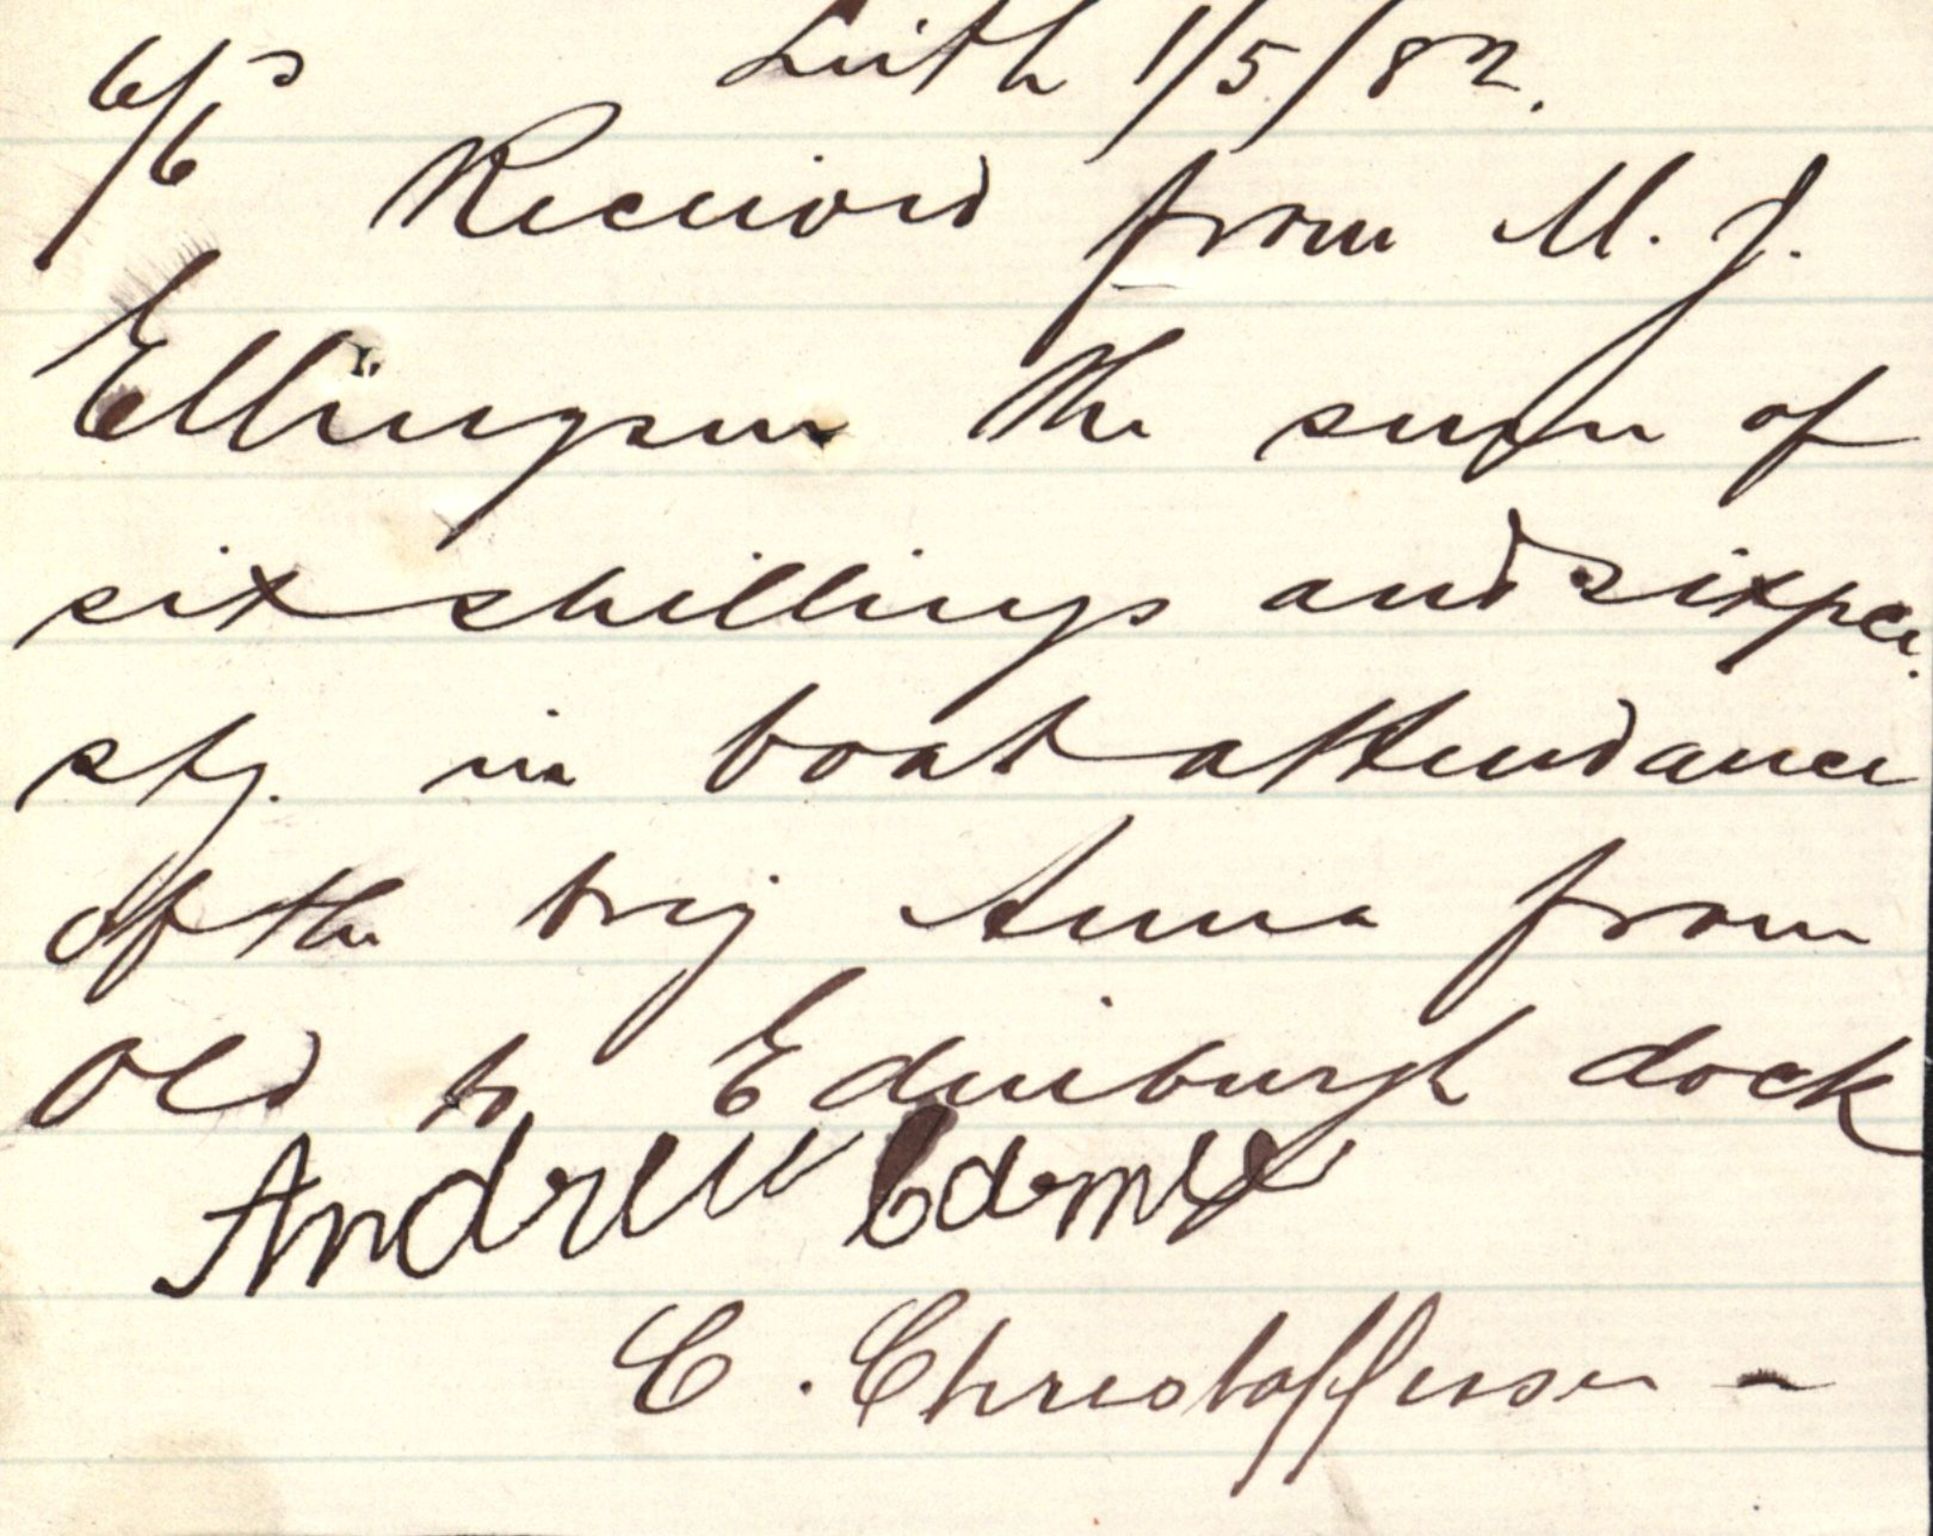 6/6 Leith 1/5/82.
Received from M. J.
Ellingsen the sum of
six shillings and sixpen.
stg. in boat attendance
of the brig Anna from
Old to Edinburgh dock
Andrew
C. Christoffersen